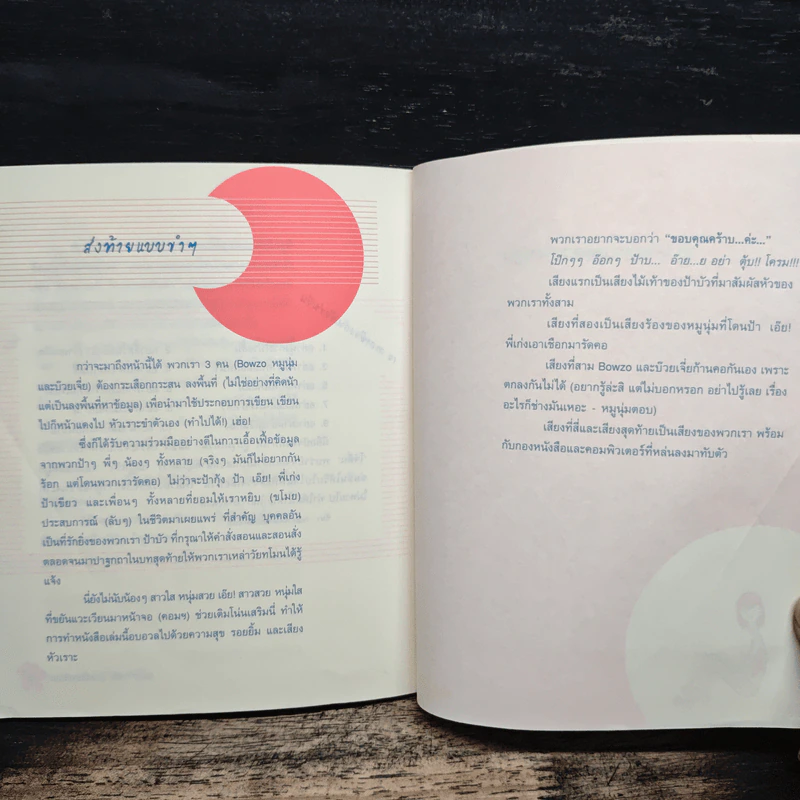 ส่งท้ายแบบขำๆ
กว่าจะมาถึงหน้านี้ได้ พวกเรา 3 คน (Bowzo หมูนุ่ม
และบ๊วยเจี่ย) ต้องกระเสือกกระสน ลงพื้นที่ (ไม่ใช่อย่างที่คิดน้า
แต่เป็นลงพื้นที่หาข้อมูล) เพื่อนำมาใช้ประกอบการเขียน เขียน
ไปก็หน้าแดงไป หัวเราะขำตัวเอง (ทำไปได้!) เฮ่อ!
ซึ่งก็ได้รับความร่วมมืออย่างดีในการเอื้อเฟื้อข้อมูล
จากพวกป้าๆ พี่ๆ น้องๆ ทั้งหลาย (จริงๆ มันก็ไม่อยากกัน
ร้อก แต่โดนพวกเรารัดคอ) ไม่ว่าจะป้ากุ้ง ป้า เอ๊ย! พี่เก่ง
ป้าเขียว และเพื่อนๆ ทั้งหลายที่ยอมให้เราหยิบ (ขโมย)
ประสบการณ์ (ลับๆ) ในชีวิตมาเผยแพร่ ที่สำคัญ บุคคลอัน
เป็นที่รักยิ่งของพวกเรา ป้าบัว ที่กรุณาให้คำสั่งสอนและสอนสั่ง
ตลอดจนมาปาฐกถาในบทสุดท้ายให้พวกเราเหล่าวัยทโมนได้รู้
แจ้ง
นี่ยังไม่นับน้องๆ สาวใส หนุ่มสวย เอ๊ย! สาวสวย หนุ่มใส
ที่ขยันแวะเวียนมาหน้าจอ (คอมฯ) ช่วยเติมโน่นเสริมนี่ ทำให้
การทำหนังสือเล่มนี้อบอวลไปด้วยความสุข รอยยิ้ม และเสียง
หัวเราะ
พวกเราอยากจะบอกว่า "ขอบคุณคร้าบ...ค่ะ..."
โป๊กๆๆ อ๊อกๆ ป้าบ... อ๊าย...ย อย่า ตุ้บ!! โครม!!!
เสียงแรกเป็นเสียงไม้เท้าของป้าบัวที่มาสัมผัสหัวของ
พวกเราทั้งสาม
เสียงที่สองเป็นเสียงร้องของหมูนุ่มที่โดนป้า เอ๊ย!
พี่เก่งเอาเชือกมารัดคอ
เสียงที่สาม Bowzo และบ๊วยเจี่ยก้านคอกันเอง เพราะ
ตกลงกันไม่ได้ (อยากรู้ล่ะสิ แต่ไม่บอกหรอก อย่าไปรู้เลย เรื่อง
อะไรก็ช่างมันเหอะ - หมูนุ่มตอบ)
เสียงที่สี่และเสียงสุดท้ายเป็นเสียงของพวกเรา พร้อม
กับกองหนังสือและคอมพิวเตอร์ที่หล่นลงมาทับตัว